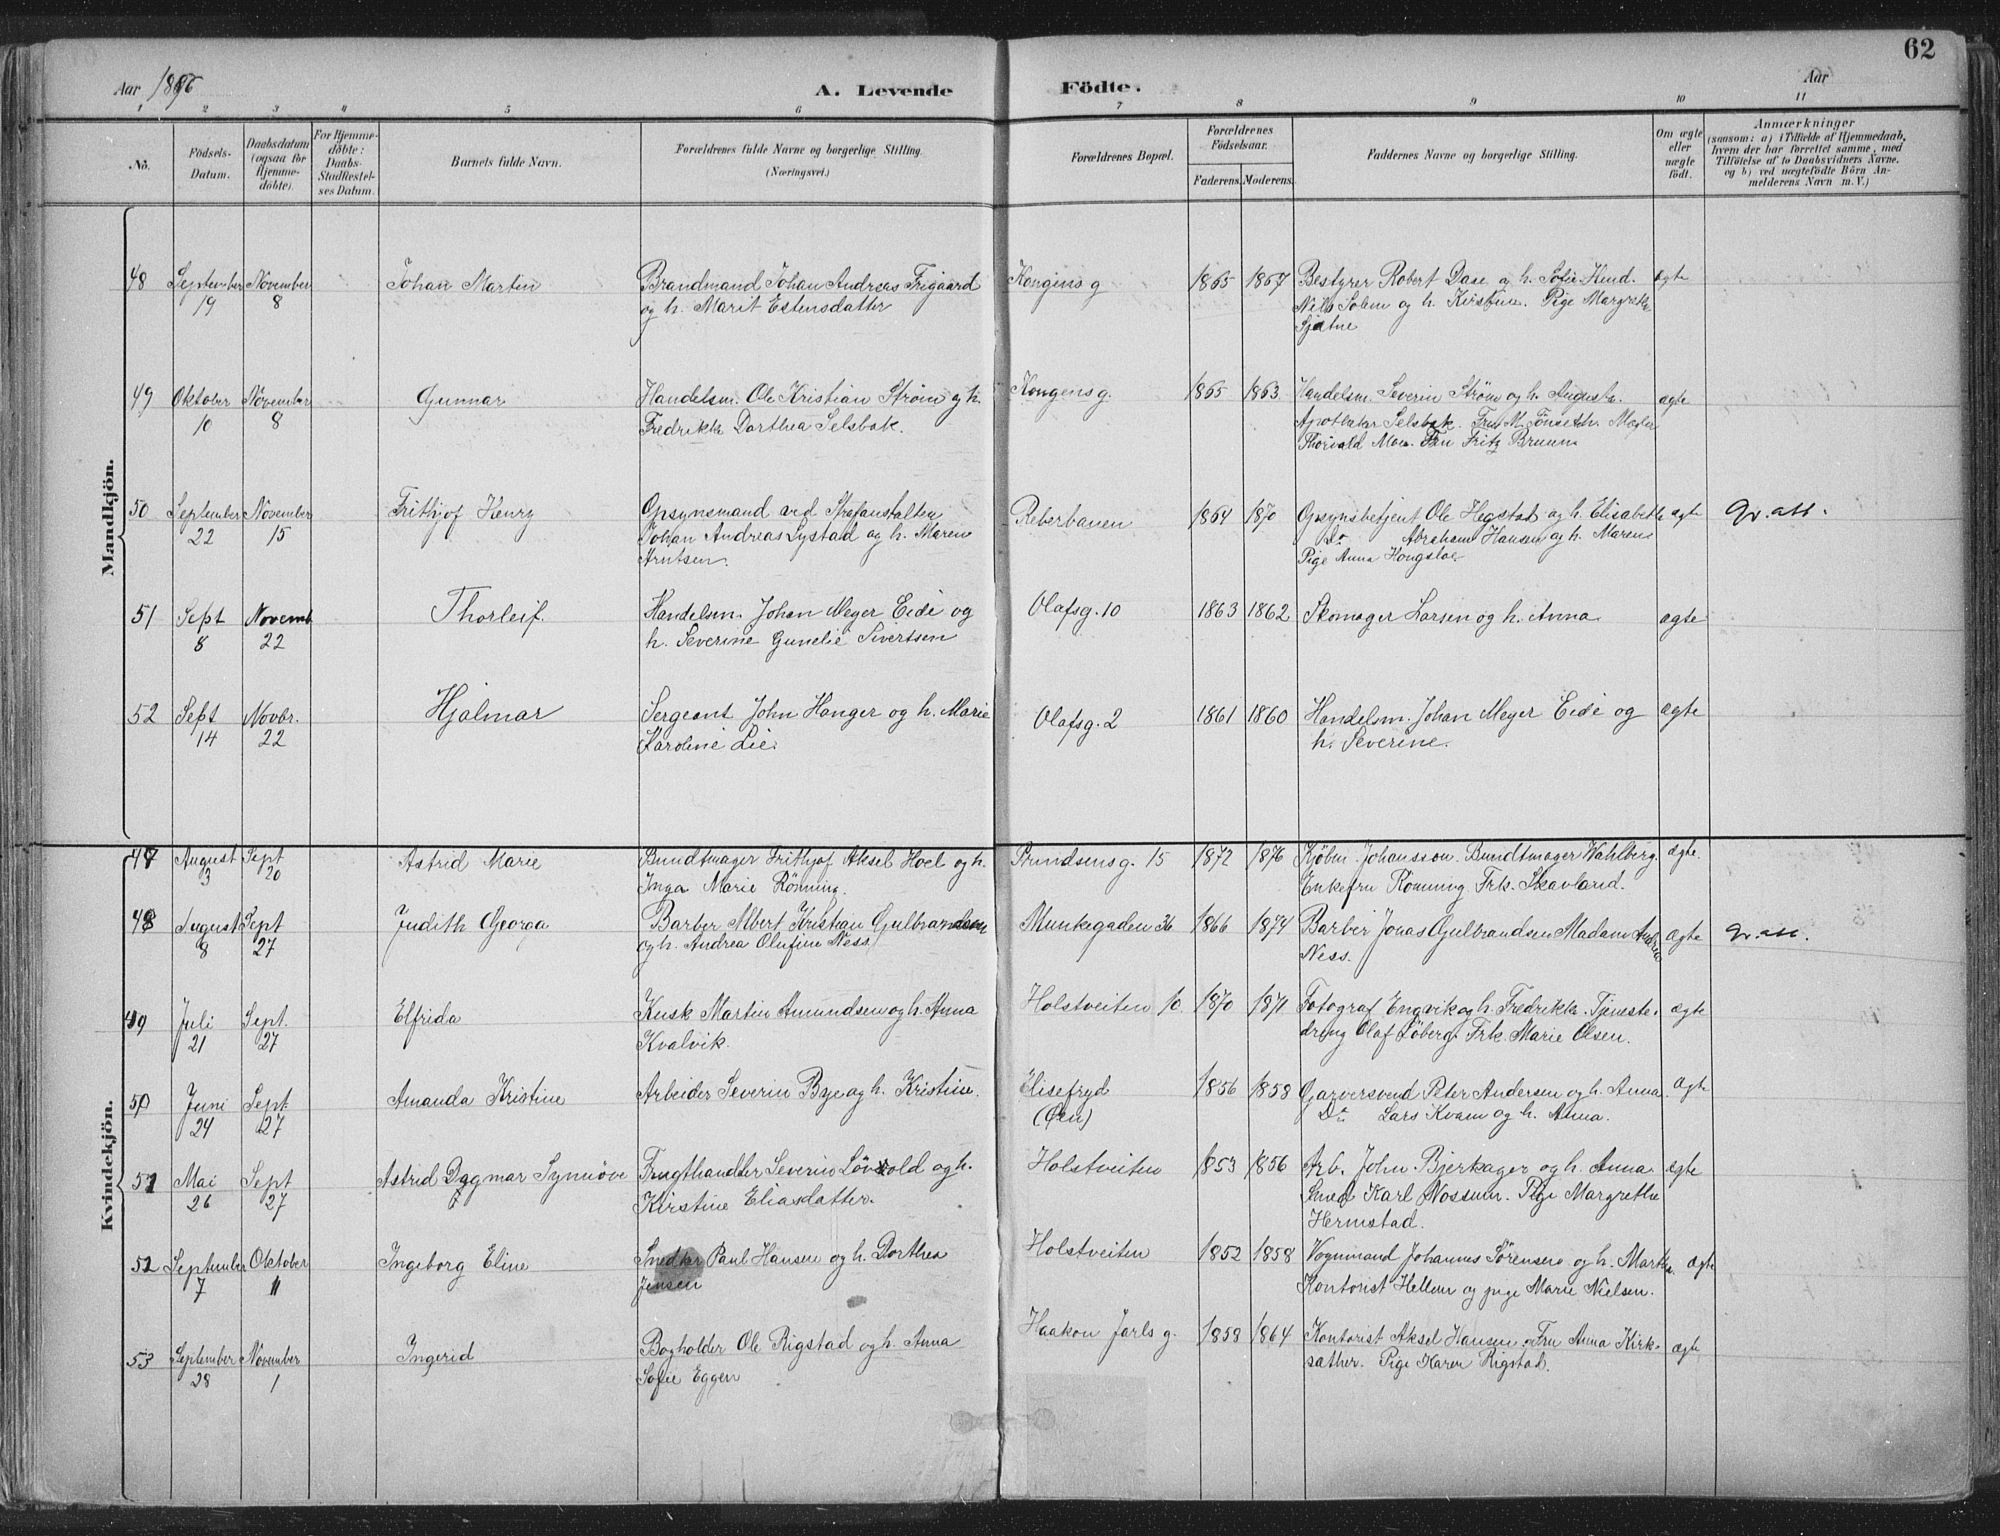 62
Aar 1896
A. Levende Födte.
Aar
1 2 3 4 5 6 7 8 9 10 11
No.
Födsels-Datum.
Daabsdatum (ogsaa for Hjemme-döbte).
For Hjemme-döbte: Daabs-Stadfæstel-ses Datum.
Barnets fulde Navn.
Forældrenes fulde Navne og borgerlige Stilling. (Næringsvei.)
Forældrenes Bopæl.
Forældrenes Födselsaar.
Faderens. Moderens.
Faddernes Navne og borgerlige Stilling.
Om ægte eller uægte födt.
Anmærkninger (saasom: a) i Tilfælde af Hjemmedaab, hvem der har forrettet samme, med Tilföielse af to Daabsvidners Navne, og b) ved uægtefödte Börn An-melderens Navn m. V.)
Mandkjön.
48 September 19 November 8 Johan Martin Brandmand Johan Andreas Frigaard og h. Marit Estensdatter Kongensg 1865 1867 Bestyrer Robert Dase og h. Sofie Hind. Nils Solem og h. Kirstine. Pige Margrethe Sjetne ægte
49 Oktober 10 November 8 Gunnar Handelsm. Ole Kristian Strøm og h. Fredrikke Dorthea Selsbak. Kongensg. 1865 1863 Handelsm. Severin Strøm og h. Auguste. Apotheker Selsbak. Fru M. Tønseth. Mægler Thorvald Moe. Fru Fritz Bruun ægte
50 September 22 November 15 Frithjof Henry Opsynsmand ved Strafanstalten Johan Andreas Systad og h. Maren Arntsen. Reberbanen 1864 1870 Opsynsbetjent Ole Hegstad og h. Elisabeth Do Abraham Hansen og h. Maren Pige Anna Hongsloe ægte
51 Sept 8 Novemb 22 Thorleif. Handelsm. Johan Meyer Eide og h. Severine Gunelie Sivertsen Olafsg. 10 1863 1862 Skomager Larsen og h. Anna ægte
52 Sept 14 Novbr. 22 Hjalmar Sergeant John Hanger og h. Marie Karoline Lie. Olafsg. 2 1861 1860 Handelsm. Johan Meyer Eide og h. Severine. ægte
Kvindekjön.
47 August 3 Sept 20 Astrid Marie Bundtmager Frithjof Aksel Hoel og h. Inga Marie Rönning. Prindsensg. 15 1872 1876 Kjøbm. Johansson. Bundtmager Wahlberg. Enkefru Rönning. Frk. Skavland. ægte.
48 August 8 Sept 27 Judith Georga Barber Albert Kristian Gulbrandsen og h. Andrea Olufine Ness Munkegaden 36 1866 1874 Barber Jonas Gulbrandsen Madam Andrea Ness. ægte
49 Juli 21 Sept. 27 Elfrida Kusk Martin Amundsen og h. Anna Kvalvik. Holstveiten 10 1870 1871 Fotograf Engvik og h. Fredrikke. Tjeneste-dreng Olaf Löberg. Frk. Marie Olsen. ægte
50 Juni 24 Sept. 27 Amanda Kristine Arbeider Severin Bye og h. Kristine. Elisefryd (Øen) 1856 1858 Garversvend Peter Andersen og h. Anna. Do Lars Kvam og h. Anna. ægte
51 Mai 26 Sept 27 Astrid Dagmar Synnøve Frugthandler Severin Lövold og h. Kirstine Eliasdatter. Holstveiten 1853 1856 Arb. John Bjerkager og h. Anna Smed Karl Nossum. Pige Margrethe Hermstad. ægte
52 September 7 Oktober 11 Ingeborg Eline Snedker Paul Hansen og h. Dorthea Jensen Holstveiten 1852 1858 Vognmand Johannes Sörensen og h. Martha. Kontorist Hellem og pige Marie Nielsen. ægte
53 September 28 November 1 Ingerid Bogholder Ole Rigstad og h. Anna Sofie Eggen Haakon Jarls g. 1858 1864 Kontorist Aksel Hansen. Fru Anna Kirk-sæther. Pige Karen Rigstad. ægte